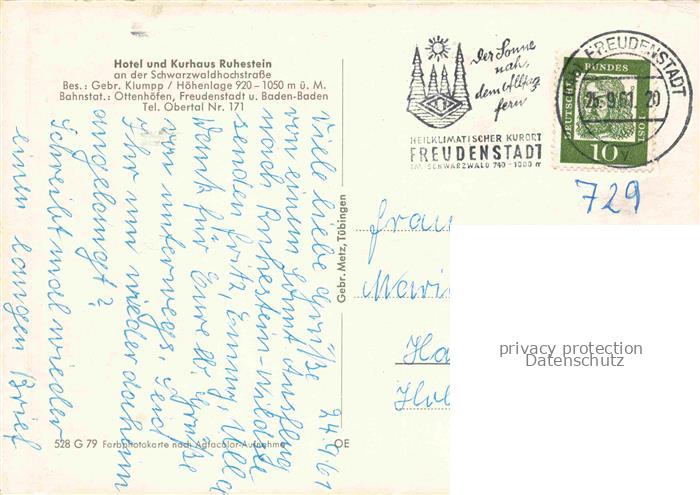 Hotel und Kurhaus Ruhestein
an der Schwarzwaldhochstraße
Bes.: Gebr. Klumpp / Höhenlage 920 – 1050 m ü. M.
Bahnstat.: Ottenhöfen, Freudenstadt u. Baden-Baden
Tel. Obertal Nr. 171
24.9.61
Viele liebe Grüße
von einem Sonnt. Ausflug
nach Ruhestein-Wildsee
senden Fritz, Emmy, Ulla
Dank für Eure lb. Grüße
von unterwegs. Seid
Ihr nun wieder daheim
angelangt?
Schreibt mal wieder
einen langen Brief
528 G 79 Farbphotokarte nach Agfacolor-Aufnahme
OE
Gebr. Metz, Tübingen
Der Sonne
nah,
dem Alltag
fern
HEILKLIMATISCHER KURORT
FREUDENSTADT
IM SCHWARZWALD 740 - 1000 m
FREUDENSTADT
25.9.61. 20
DEUTSCHE BUNDESPOST
10
729
Frau
Ha
privacy protection
Datenschutz